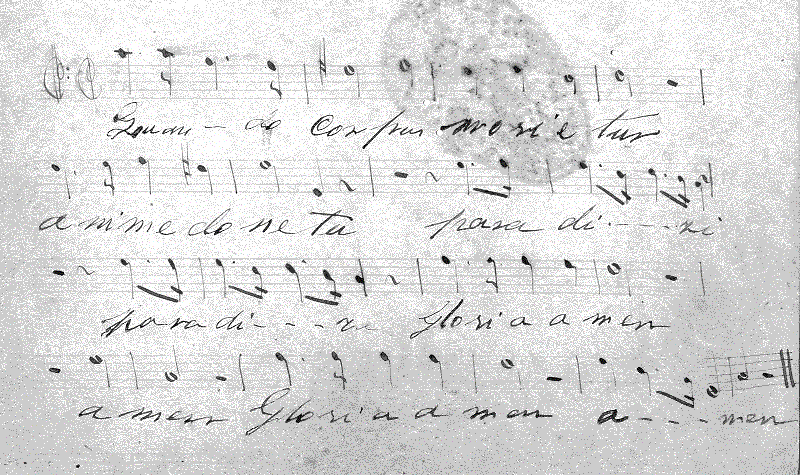 Quan - do corpus morietur
anime do ne tu para di - - - zi
para di - - - zi gloria amen
amen Gloria a men a - - - men